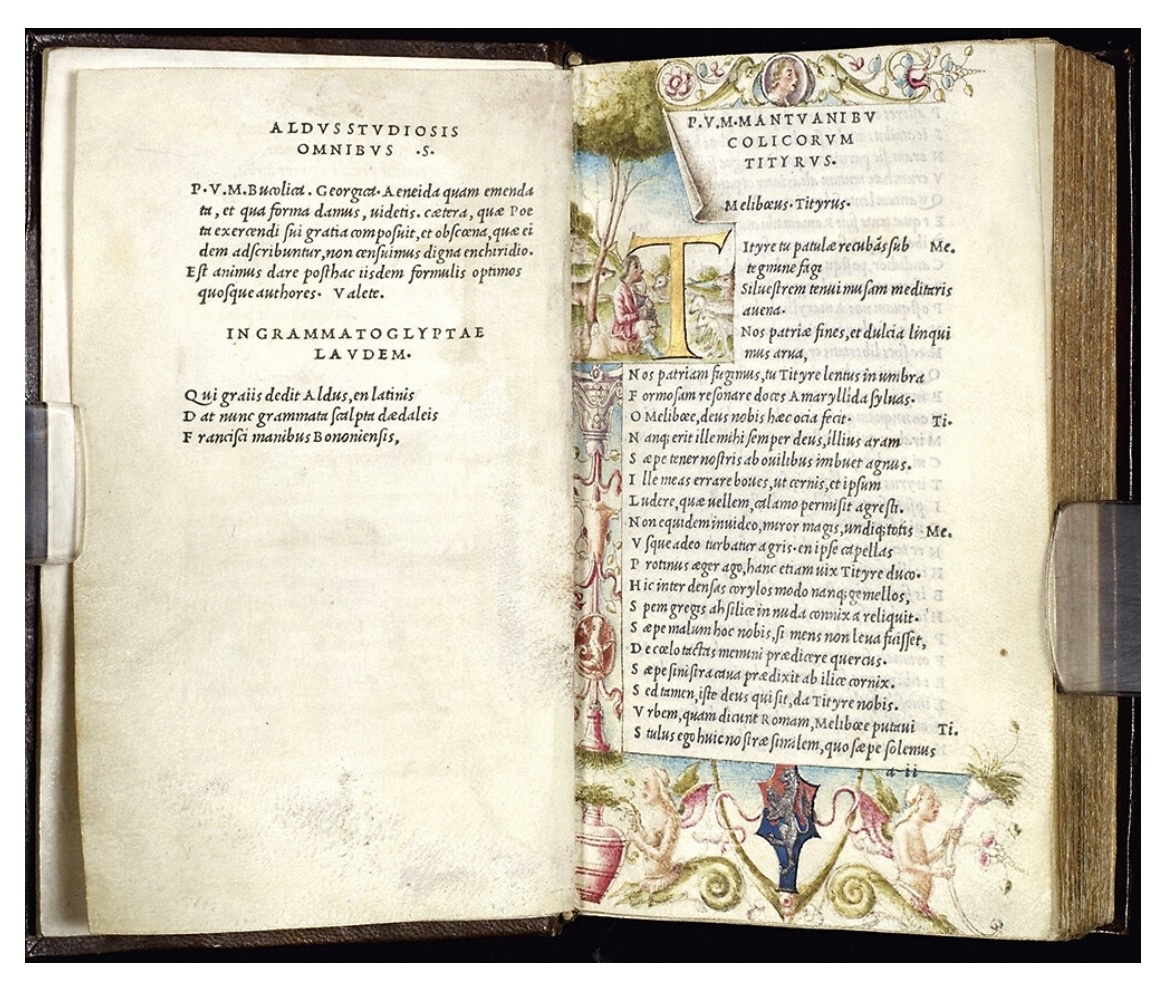 ALDVS STVDIOSIS
OMNIBVS ·S·
P·V.M.Bucolica. Georgica. Aeneida quam emenda
ta, et qua forma damus, uidetis. cætera, quæ Poe
ta exercendi sui gratia composuit, et obscœna, quæ ei
dem adscribuntur, non censuimus digna enchiridio.
Est animus dare posthac iisdem formulis optimos
quosque authores. Valete.
IN GRAMMATOGLYPTAE
LAVDEM·
Qui graiis dedit Aldus, en latinis
Dat nunc grammata scalpta dædaleis
Francisci manibus Bononiensis,
P.V.M·MANTVANI BV
COLICORVM
TITYRVS·
Melibœus· Tityrus·
TItyre tu patulæ recubãs sub Me.
tegmine fagi
Siluestrem tenui musam meditaris
auena·
Nos patriæ fines, et dulcia linqui
mus arua,
Nos patriam fugimus, tu Tityre lentus in umbra
Formosam resonare doces Amaryllida syluas.
O Melibœe, deus nobis hæc ocia fecit· Ti·
Nanq; erit ille mihi semper deus, illius aram
Sæpe tener nostris ab ouilibus imbuet agnus.
Ille meas errare boues, ut cernis, et ipsum
Ludere, quæ uellem, calamo permisit agresti.
Non equidem inuideo, miror magis, undiq; totis Me.
Vsque adeo turbatur agris· en ipse capellas
Protinus æger ago, hanc etiam uix Tityre duco·
Hic inter densas corylos modo nanq; gemellos,
Spem gregis ah silice in nuda connixa reliquit·
Sæpe malum hoc nobis, si mens non leua fuisset,
De cœlo tactas memini prædicere quercus·
Sæpe sinistra caua prædixit ab ilice cornix.
Sed tamen, iste deus qui sit, da Tityre nobis.
Vrbem, quam dicunt Romam, Melibœe putaui Ti.
Stulus ego huic nostræ similem, quo sæpe solemus
a ii